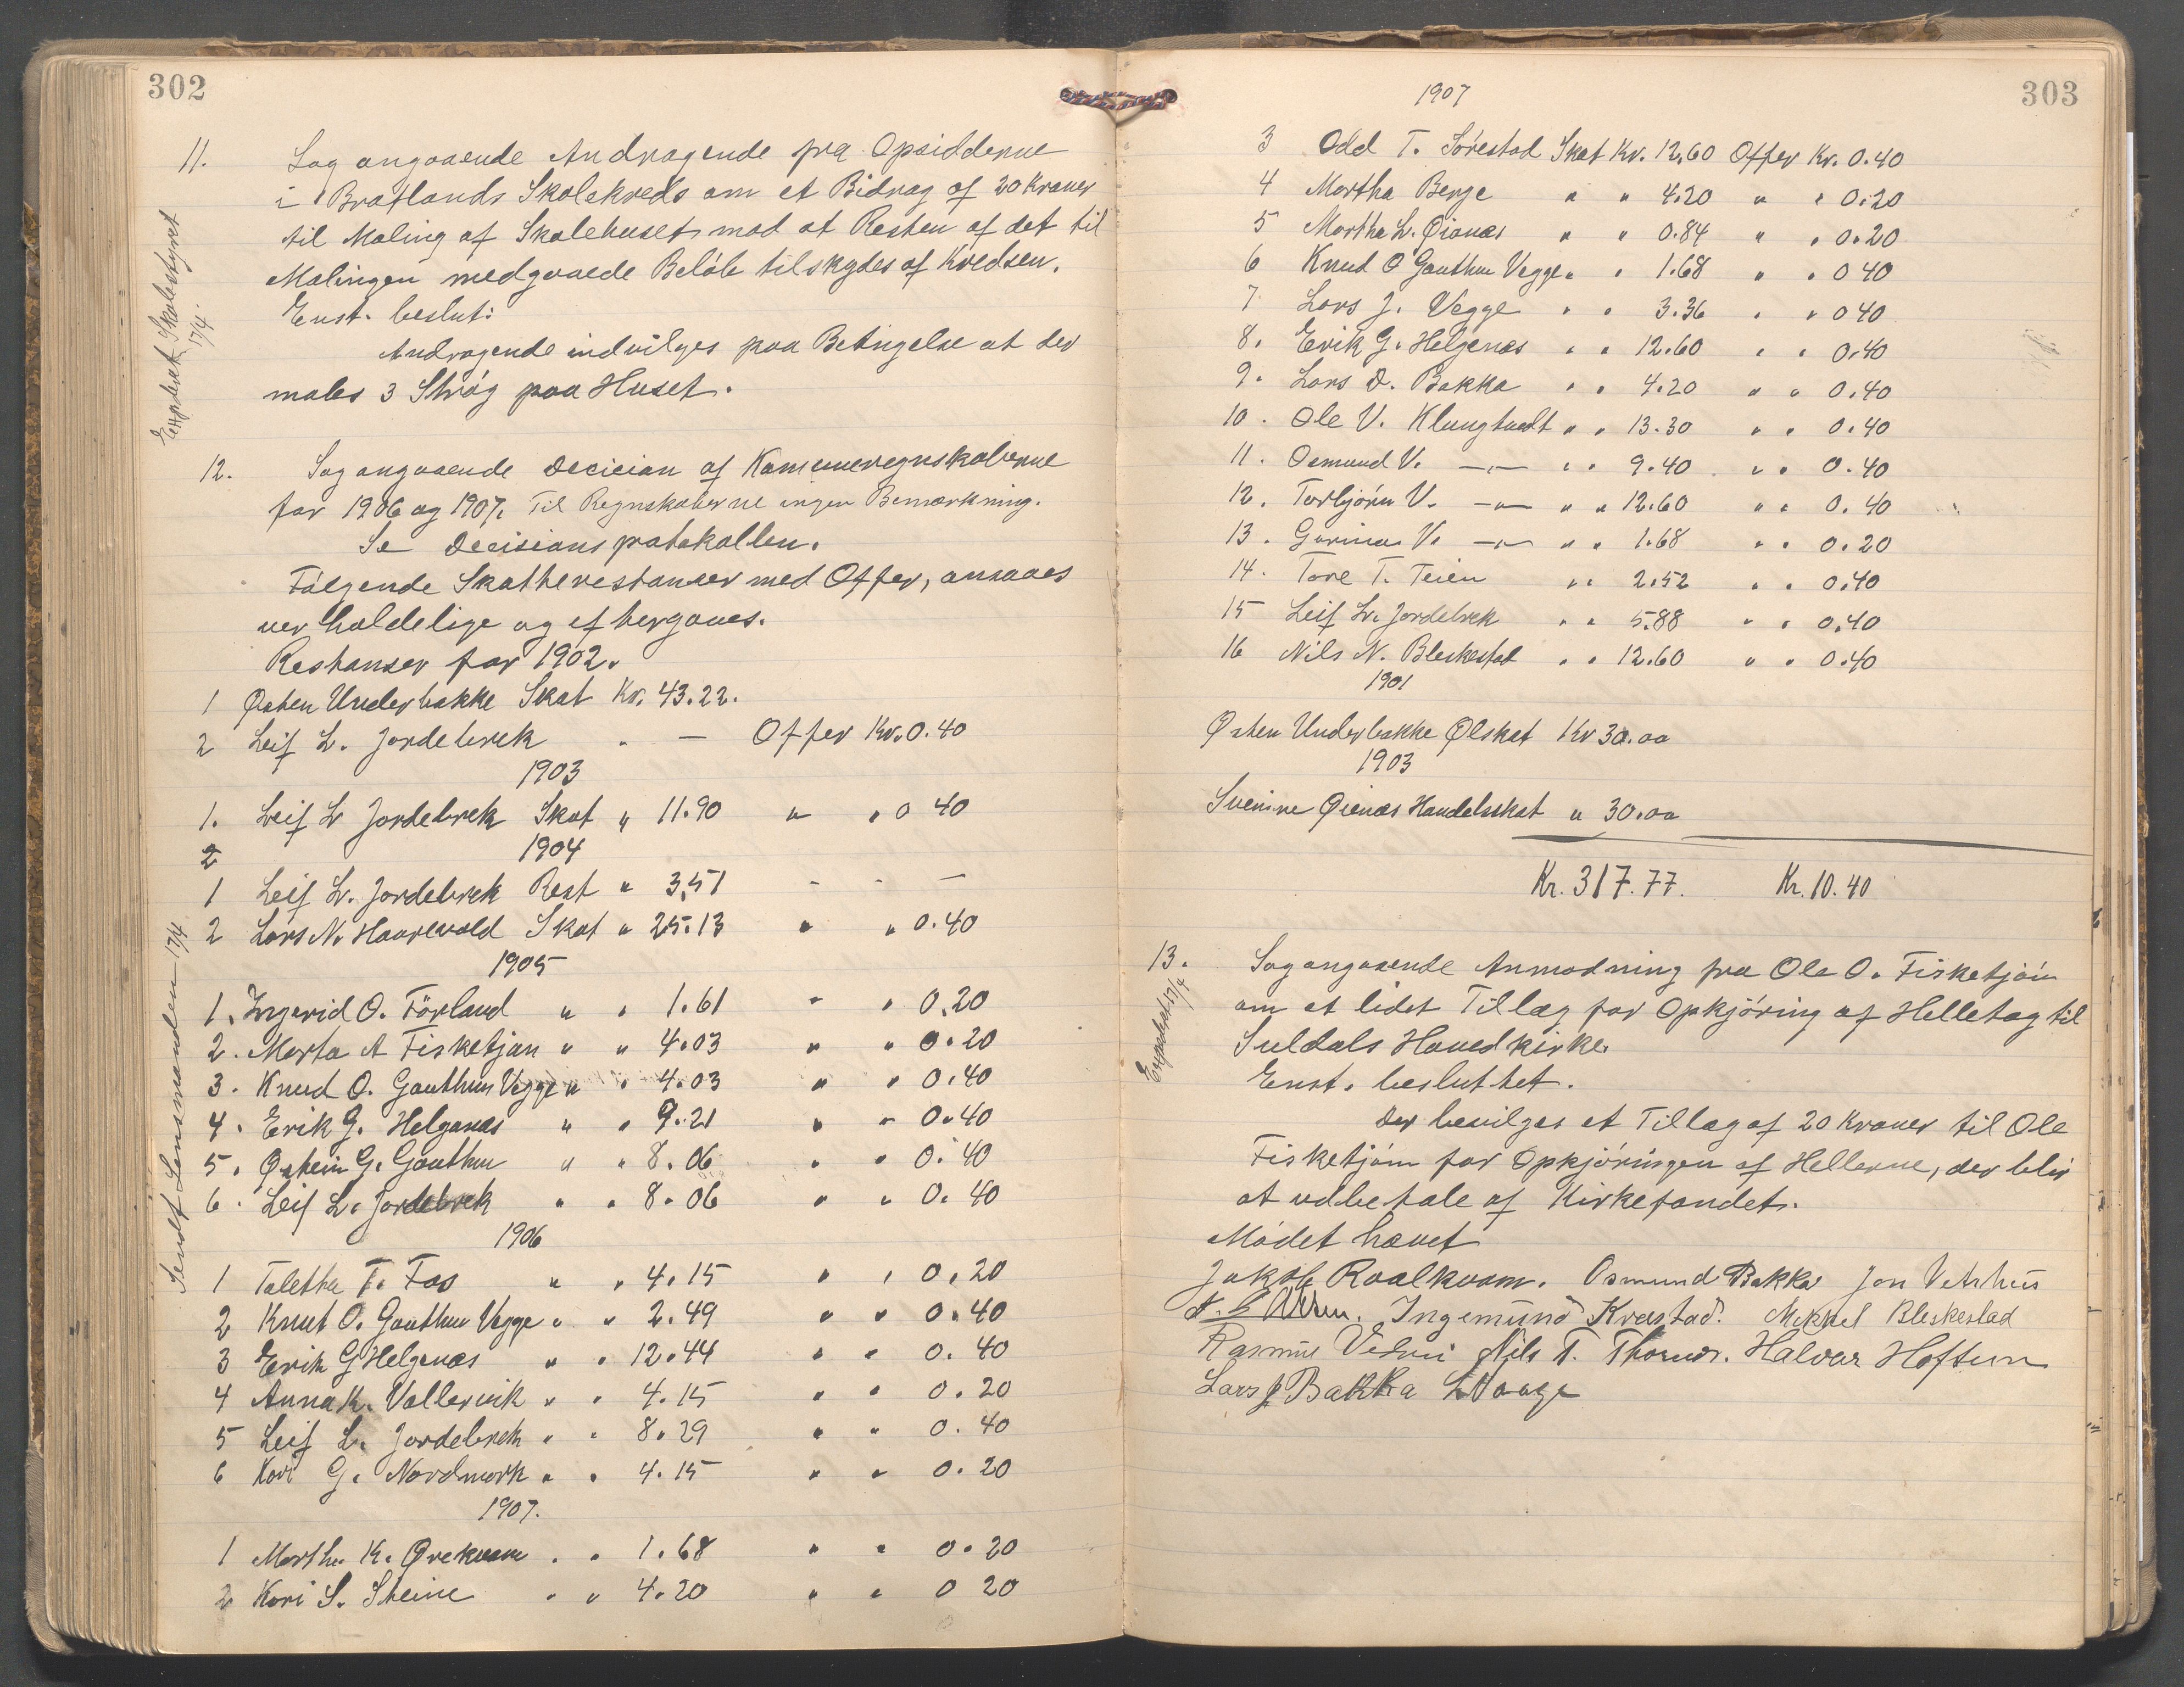 302
11. Sag angaaende Andragende fra Opsidderne
i Bratlands Skolekreds om et Bidrag af 20 Kroner
til Maling af Skolehuset mod at Resten af det til
Malingen medgaaede Beløb tilskydes af Kredsen.
Enst. beslut:
Andragende indvilges paa Betingelse at der
males 3 Strøg paa Huset.
Expedert Skolestyret
17/4.
12. Sag angaaende Decision af Kommuneregnskaberne
for 1906 og 1907. Til Regnskaberne ingen Bemærkning.
Se Decisionsprotokollen.
Følgende Skatterestanser med Offer, ansaaes
uerholdelige og eftergaves.
Restanser for 1902.
1 Østen Underbakke Skat Kr. 43.22.
2 Leif L. Jordebrek " — Offer Kr. 0.40
1903
1. Leif L Jordebrek Skat " 11.90 " " 0 40
2 1904
1 Leif L. Jordebrek Rest " 3,51 - - —
2 Lars N. Haarevold Skat " 25.13 " " 0.40
1905
1. Ingerid O. Förland " " 1.61 " " 0.20
2. Marta A Fisketjøn " " 4.03 " " 0.20
3. Knud O. Gauthun Vegge " " 4.03 " " 0.40
4. Erik G. Helganæs " " 9.21 " " 0.40
5. Østein G. Gauthun " " 8.06 " " 0.40
6. Leif L. Jordebrek " " 8.06 " " 0.40
1906
1 Taletha T. Fos " " 4.15 " " 0.20
2 Knut O. Gauthun Vegge " " 2.49 " " 0.40
3 Erik G Helgenæs " " 12.44 " " 0.40
4 Anna K. Vallervik " " 4.15 " " 0.20
5 Leif L. Jordebrek " " 8.29 " " 0.40
6 Kari G. Nordmork " " 4.15 " " 0.20
1907.
1 Martha K. Ørekvam " " 1.68 " " 0.20
2 Kari S. Steine " " 4.20 " " 0 20
Sendt Lensmanden 17/4
303
1907
3 Odd T. Sørestad Skat Kr. 12,60 Offer Kr. 0.40
4 Martha Berge " " 4.20 " " 0.20
5 Martha L. Øianæs " " 0.84 " " 0.20
6 Knud O Gauthun Vegge " " 1.68 " " 0 40
7 Lars J. Vegge " " 3.36 " " 0 40
8. Erik G. Helgenæs " " 12.60 " " 0.40
9. Lars D. Bakka " " 4.20 " " 0.40
10. Ole V. Klungtvedt " " 13.30 " " 0.40
11. Osmund V. —"— " " 9.40 " " 0.40
12. Torbjørn V. —"— " " 12.60 " " 0.40
13. Gurina V. —"— " " 1.68 " " 0.20
14. Tore T. Teien " " 2.52 " " 0.40
15 Leif L. Jordebrek " " 5.88 " " 0.40
16 Nils N. Bleskestad " " 12.60 " " 0.40
1901
Østen Underbakke Ølskat Kr 30.00
1903
Øienæs Handelsskat " 30.00
Kr. 317.77. Kr. 10.40
13. Sag angaaende Anmodning fra Ole O. Fisketjøn
om et lidet Tillæg for Opkjøring af Helletag til
Suldals Hovedkirke.
Enst. besluttet.
Der bevilges et Tillæg af 20 Kroner til Ole
Fisketjøn for Opkjøringen af Hellerne, der blir
at udbetale af Kirkefondet.
Mødet hævet
Expedert 17/4
Jakob Roalkvam. Osmund Bakka Jon Vetrhus
Ingemund Krustad. Mikkel Bleskestad
Rasmus Nils T. Halvar Hoftun
Lars J Bakka L Vaage